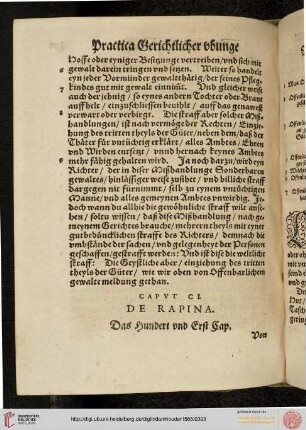 Practica Gerichtlicher vbunge
Hoffe oder eyniger Besitzunge vertreiben / vnd sich mit
gewalt darein tringen vnd setzen. Weiter so handelt
eyn jeder Vormünder gewalthätig / der seines Pfleg-
kindes gut mit gewalt einnüst. Vnd gleicher weiß
auch der jehnig / so eynes andern Tochter oder Braut
auffhelt / einzuschliessen beuihlt / auff das genawest
verwart oder verbirgt. Die straff aber solcher Miß-
handlungen / ist nach vermöge der Rechten / Einzie-
hung des dritten theyls der Güter / neben dem / daß der
Thäter für vntüchtig erklärt / alles Ambtes / Ehren
vnd Wirden entsetzt / vnd hernach keynes Ambtes
mehr fähig gehalten wird. Ja noch darzu / wird eyn
Richter / der in dieser Mißhandlunge Sonderbaren
gewaltes / hinlässiger weiß zusihet / vnd billiche straff
dargegen nit fürnimmt / selb zu eynem vntüchtigen
Manne / vnd alles gemeynen Ambtes vnwirdig. Je-
doch wann du allhie die gewöhnliche straff wilt anse-
hen / soltu wissen / daß diese Mißhandlung / nach ge-
meynem Gerichtes brauche / mehrern theyls mit eyner
gutbedüncklichen straffe des Richters / demnach die
vmbstände der sachen / vnd gelegenheyt der Personen
geschaffen / gestrafft werden: Vnd ist diß die weltliche
straff: Die Geystliche aber / einziehung des dritten
theyls der Güter / wie wir oben von Offenbarlichen
gewalt meldung gethan.
CAPVT CI.
DE RAPINA.
Das Hundert vnd Erst Cap.
Von
http://digi.ub.uni-heidelberg.de/diglit/damhouder1565/0393